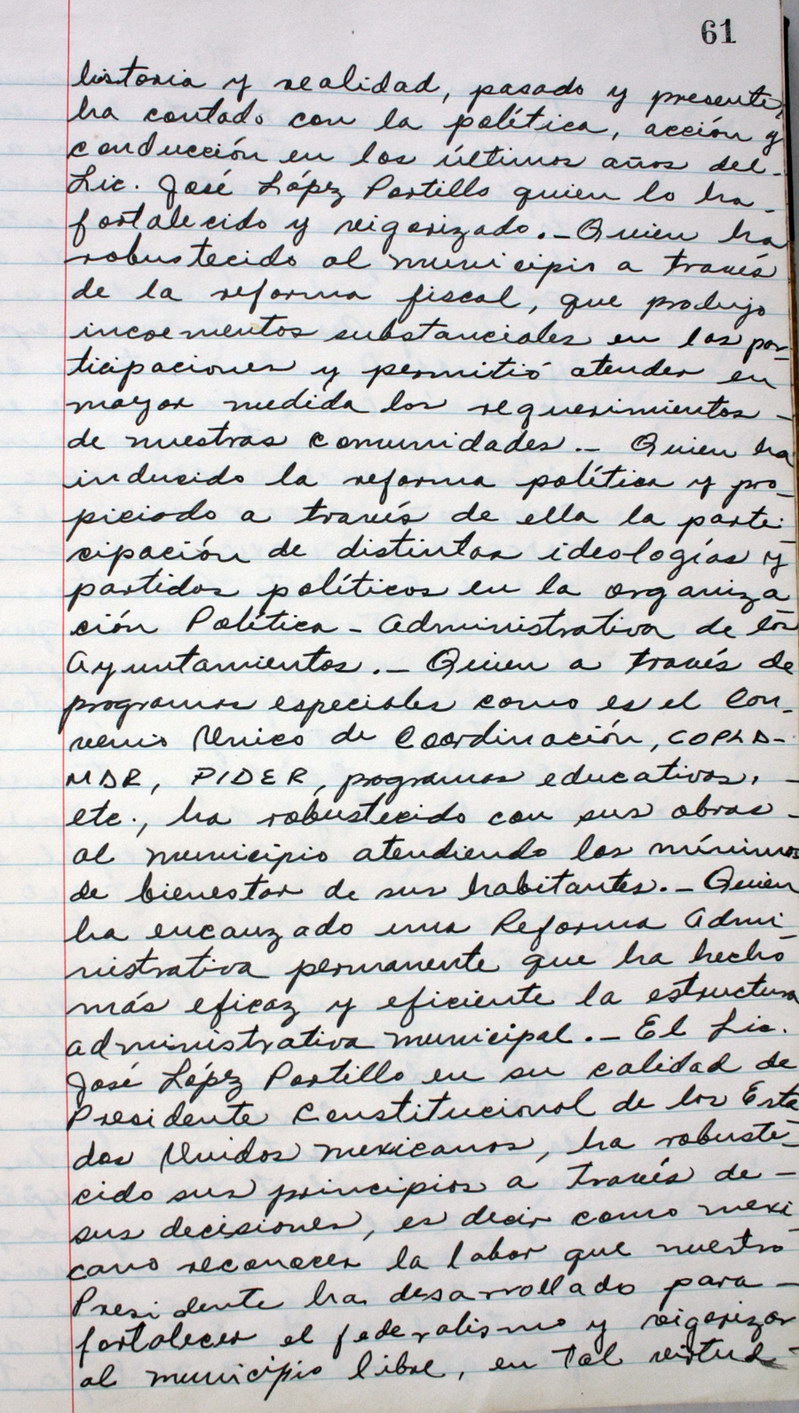 61
historia y realidad, pasado y presente,
ha contado con la política, acción y
conducción en los últimos años del-
Lic. José López Portillo quien lo ha-
fortalecido y vigorizado.- Quien ha
robustecido al municipio a través
de la reforma fiscal, que produjo
incrementos substanciales en las par-
ticipaciones y permitió atender en
mayor medida los requerimientos -
de nuestras comunidades.- Quien ha
inducido la reforma política y pro-
piciado a través de ella la parti-
cipación de distintas ideologías y
partidos políticos en la organiza
ción Política - Administrativa de los
Ayuntamientos.- Quien a través de
programas especiales como es el Con-
venio Unico de Coordinación, COPLA-
MAR, PIDER, programas educativos, -
etc., ha robustecido con sus obras -
al municipio atendiendo los mínimos
de bienestar de sus habitantes.- Quien
ha encauzado una Reforma Admi-
nistrativa permanente que ha hecho
más eficaz y eficiente la estructura
administrativa municipal.- El Lic.
José López Portillo en su calidad de
Presidente Constitucional de los Esta
dos Unidos mexicanos, ha robuste-
cido sus principios a través de -
sus decisiones, es decir como mexi
cano reconocer la labor que nuestro
Presidente ha desarrollado para -
fortalecer el federalismo y vigorizar
al municipio libre, en tal virtud -